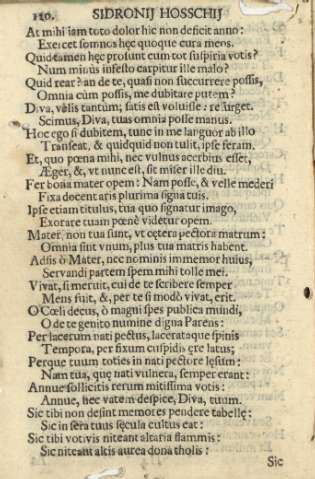 120. SIDRONIJ HOSSCHIJ
At mihi iam toto dolor hic non deficit anno:
Exercet somnos hęc quoque cura meos.
Quid tamen hęc prosunt cum tot suspiria votis?
Num minùs infesto carpitur ille malo?
Quid rear? an de te, quasi non succurrere possis,
Omnia cùm possis, me dubitare putem?
Diva, velis tantùm; satis est voluisse: resurget.
Scimus, Diva, tuas omnia posse manus.
Hoc ego si dubitem, tunc in me languor ab illo
Transeat, & quidquid non tulit, ipse feram.
Et, quo pœna mihi, nec vulnus acerbius esset,
Æger, &, ut nunc est, sit miser ille diu.
Fer bona mater opem: Nam posse, & velle mederi
Fixa docent aris plurima signa tuis.
Ipse etiam titulus, tua quo signatur imago,
Exorare tuam pœnè videtur opem.
Mater, non tua sunt, ut cętera pectora matrum:
Omnia sint unum, plus tua matris habent.
Adsis ô Mater, nec nominis immemor huius,
Servandi partem spem mihi tolle mei.
Vivat, si meruit, cui de te scribere semper
Mens fuit, &, per te si modò vivat, erit.
O Cœli decus, ô magni spes publica mundi,
O de te genito numine digna Parens:
Per lacerum nati pectus, lacerataque spinis
Tempora, per fixum cuspidis ęre latus;
Perque tuum toties in nati pectore lęsum:
Nam tua, quę nati vulnera, semper erant:
Annue sollicitis rerum mitissima votis:
Annue, nec vatem despice, Diva, tuum.
Sic tibi non desint memores pendere tabellę:
Sic in sera tuus sęcula cultus eat:
Sic tibi votivis niteant altaria flammis:
Sic niteant altis aurea dona tholis:
Sic